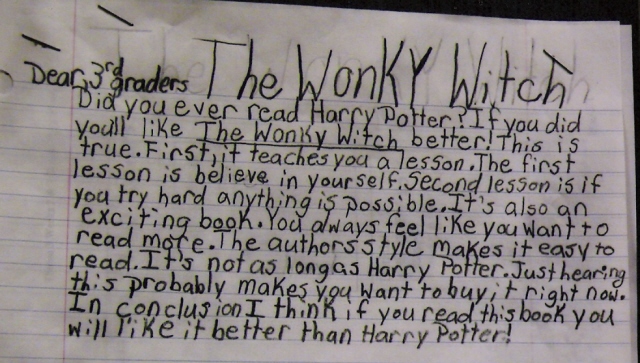 The WonKy Witch
Dear, 3rd graders
Did you ever read Harry Potter? If you did
youll like The Wonky Witch better! This is
true. First, it teaches you a lesson. The first
lesson is believe in yourself. Second lesson is if
you try hard anything is possible. It's also an
exciting book. You always feel like you want to
read more. The authors style makes it easy to
read. It's not as long as Harry Potter. Just hearing
this probably makes you want to buy it right now.
In conclusion I think if you read this book you
will like it better than Harry Potter!